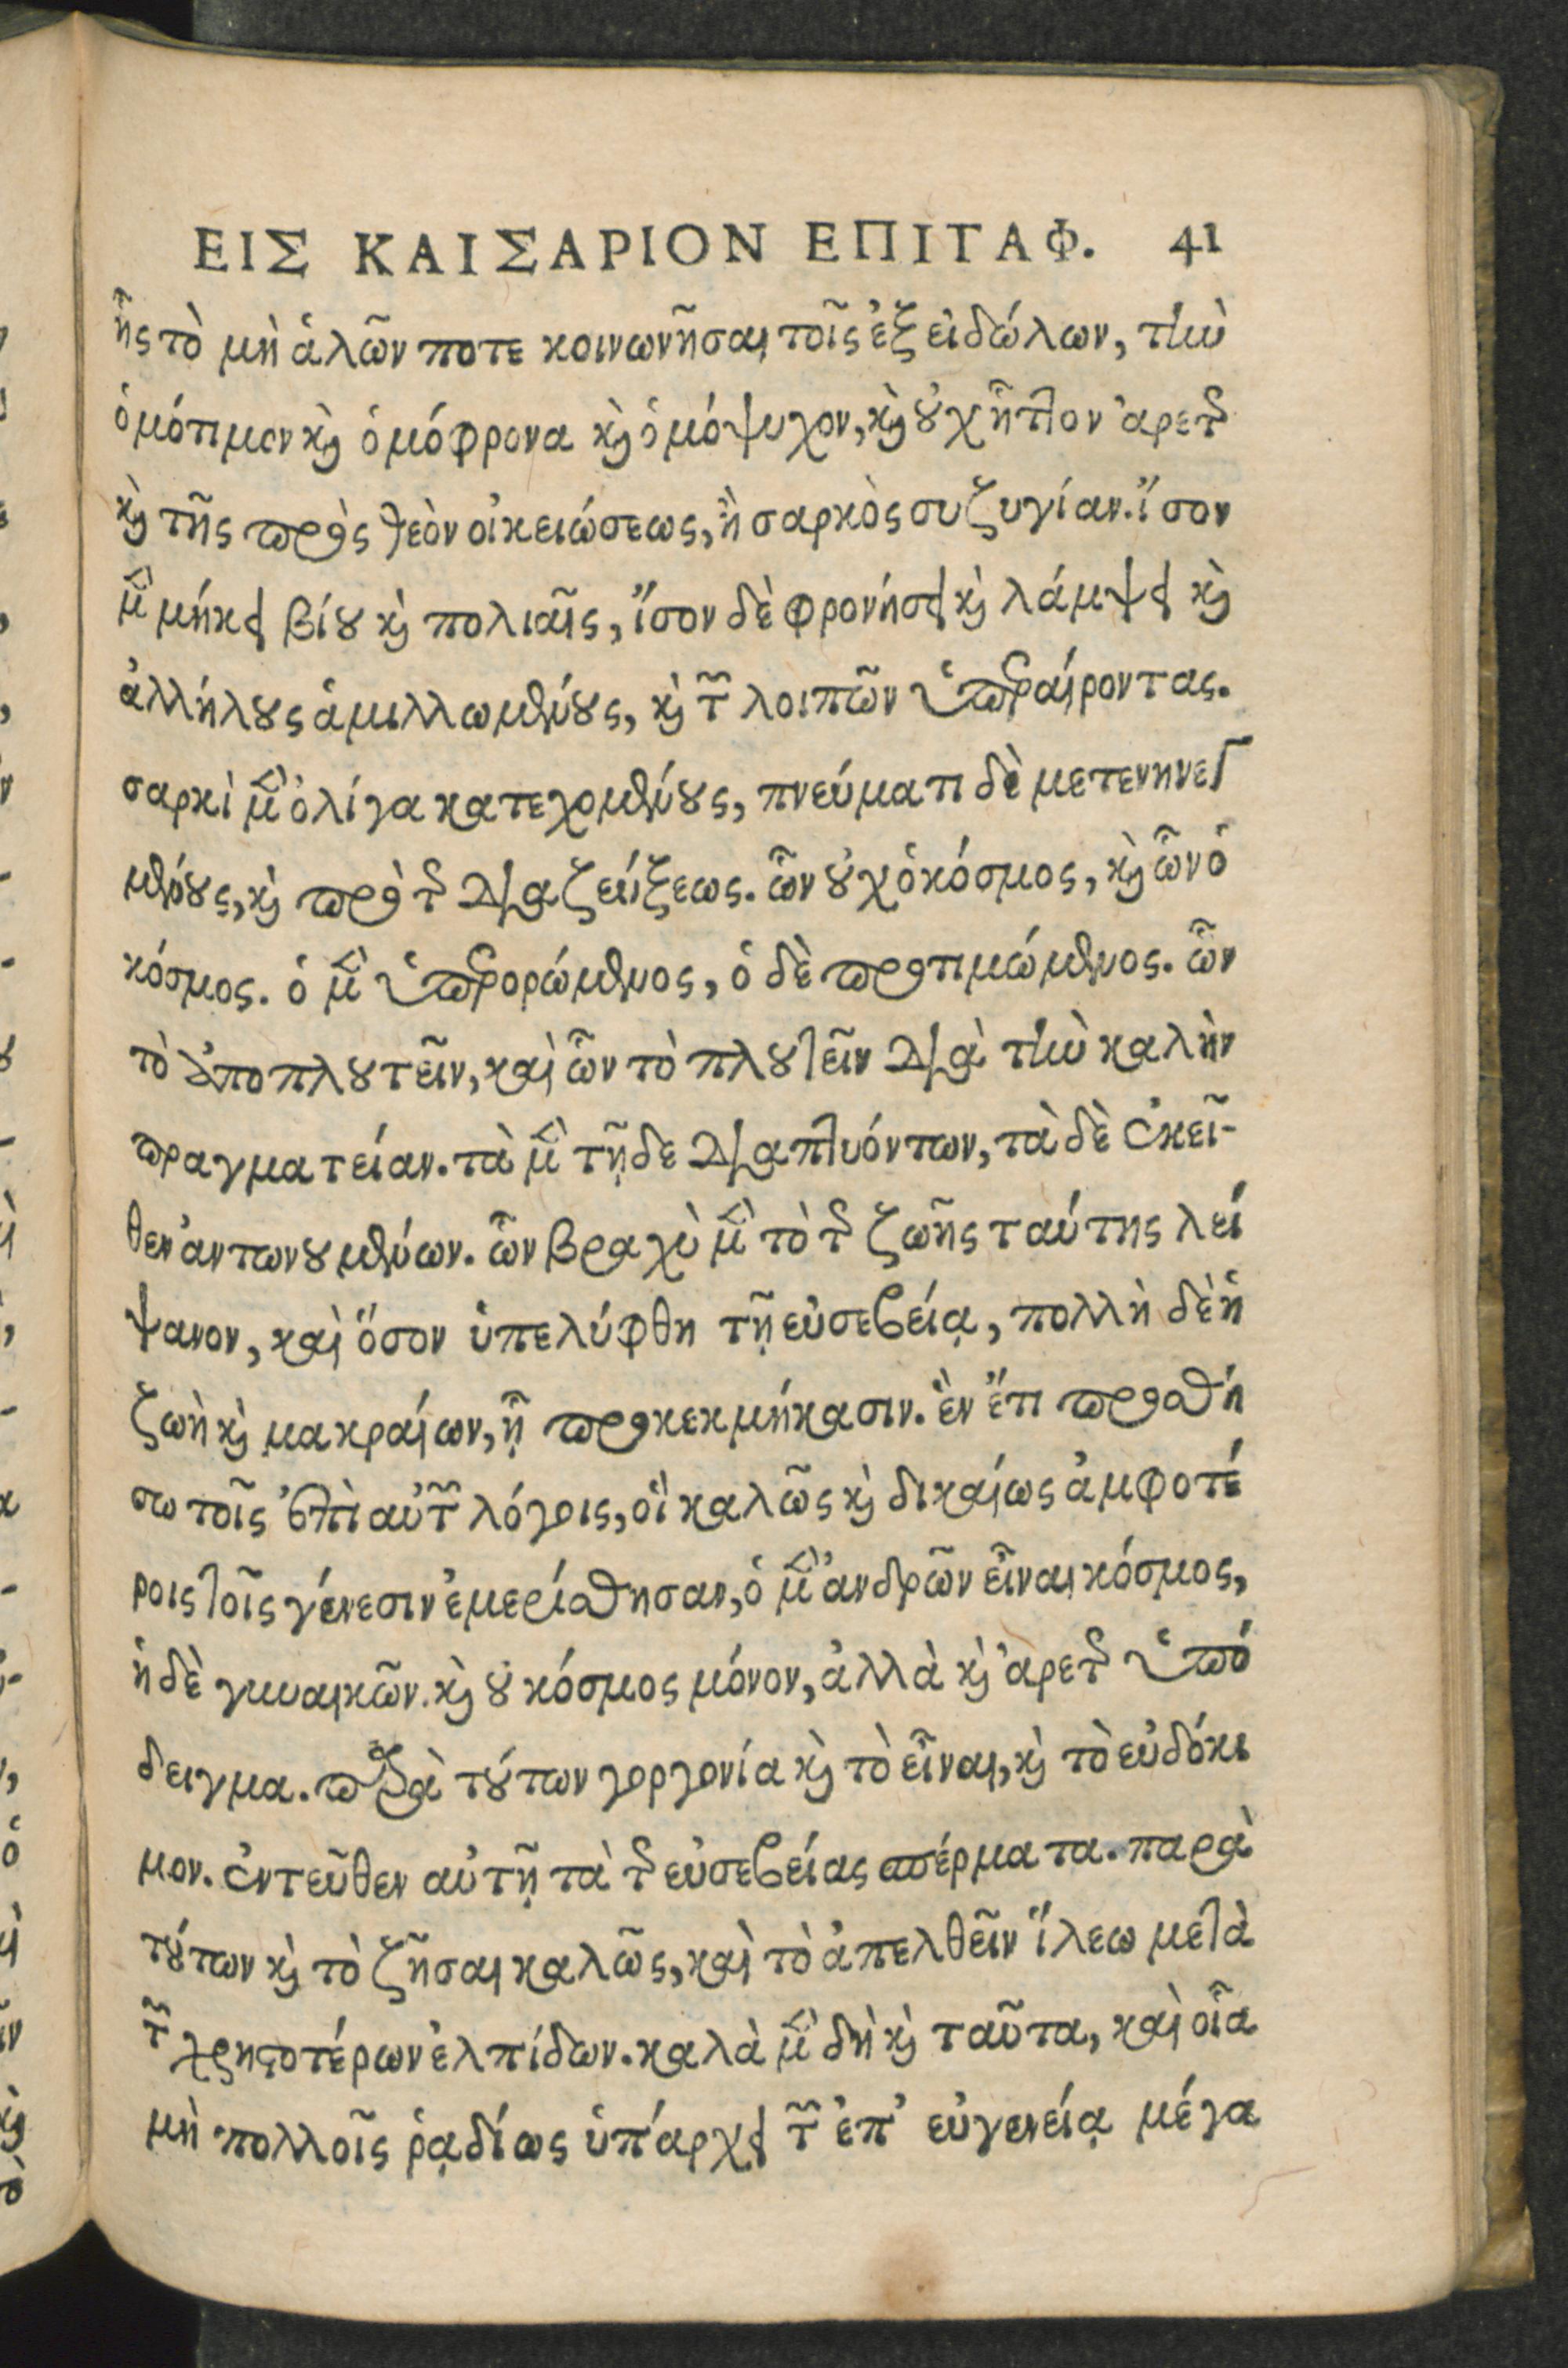 ΕΙΣ ΚΑΙΣΑΡΙΟΝ ΕΠΙΤΑΦ. 41
ἧς τὸ μὴ ἁλῶν ποτε κοινωνῆσαι τοῖς ἐξ εἰδώλων, τὴν
ὁμότιμον καὶ ὁμόφρονα καὶ ὁμόψυχον, καὶ οὐχ ἧττον ἀρετῆς
καὶ τῆς πρὸς θεὸν οἰκειώσεως, ἢ σαρκὸς συζυγίαν. ἴσον
μὲν μήκει βίου καὶ πολιαῖς, ἴσον δὲ φρονήσει καὶ λάμψει καὶ
ἀλλήλους ἁμιλλωμένους, καὶ τῶν λοιπῶν ὑπεραίροντας.
σαρκὶ μὲν ὀλίγα κατεχομένους, πνεύματι δὲ μετενηνεγ
μένους, καὶ πρὸ τῆς διαζεύξεως. ὧν οὐχ ὁ κόσμος, καὶ ὧν ὁ
κόσμος. ὁ μὲν ὑπερορώμενος, ὁ δὲ προτιμώμενος. ὧν
τὸ ἀποπλουτεῖν, καὶ ὧν τὸ πλουτεῖν διὰ τὴν καλὴν
πραγματείαν. τὰ μὲν τῇδε διαπτυόντων, τὰ δὲ ἐκεῖ-
θεν ἀντωνουμένων. ὧν βραχὺ μὲν τὸ τῆς ζωῆς ταύτης λεί
ψανον, καὶ ὅσον ὑπελύφθη τῇ εὐσεβείᾳ, πολλὴ δὲ ἡ
ζωὴ καὶ μακραίων, ᾗ προκεκμήκασιν. ἓν ἔτι προσθή
σω τοῖς ἐπὶ αὐτῶν λόγοις, οἳ καλῶς καὶ δικαίως ἀμφοτέ
ροις τοῖς γένεσιν ἐμερίσθησαν, ὁ μὲν ἀνδρῶν εἶναι κόσμος,
ἡ δὲ γυναικῶν. καὶ οὐ κόσμος μόνον, ἀλλὰ καὶ ἀρετῆς ὑπό
δειγμα. παρὰ τούτων γοργονία καὶ τὸ εἶναι, καὶ τὸ εὐδόκι
μον. ἐντεῦθεν αὐτῇ τὰ τῆς εὐσεβείας σπέρματα. παρὰ
τούτων καὶ τὸ ζῆσαι καλῶς, καὶ τὸ ἀπελθεῖν ἵλεω μετὰ
τῶν χρηστοτέρων ἐλπίδων. καλὰ μὲν δὴ καὶ ταῦτα, καὶ οἷα
μὴ πολλοῖς ῥᾳδίως ὑπάρχει τῶν ἐπ' εὐγενείᾳ μέγα